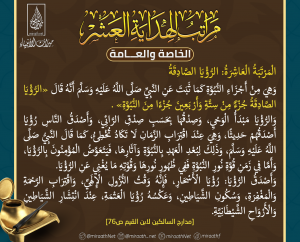 مراتب الهداية العشر
الخاصة والعامة
المَرْتَبَةُ العَاشِرَةُ: الرُّؤْيَا الصَّادِقَةُ
وَهِيَ مِنْ أَجْزَاءِ النُّبُوَّةِ كَمَا ثَبَتَ عَنِ النَّبِيِّ صَلَّى اللَّهُ عَلَيْهِ وَسَلَّمَ أَنَّهُ قَالَ «الرُّؤْيَا
الصَّادِقَةُ جُزْءٌ مِنْ سِتَّةٍ وَأَرْبَعِينَ جُزْءًا مِنَ النُّبُوَّةِ» .
وَالرُّؤْيَا مَبْدَأُ الْوَحْيِ، وَصِدْقُهَا بِحَسَبِ صِدْقِ الرَّائِي، وَأَصْدَقُ النَّاسِ رُؤْيَا
أَصْدَقُهُمْ حَدِيثًا، وَهِيَ عِنْدَ اقْتِرَابِ الزَّمَانِ لَا تَكَادُ تُخْطِئُ، كَمَا قَالَ النَّبِيُّ صَلَّى
اللَّهُ عَلَيْهِ وَسَلَّمَ، وَذَلِكَ لِبُعْدِ الْعَهْدِ بِالنُّبُوَّةِ وَآثَارِهَا، فَيَتَعَوَّضُ الْمُؤْمِنُونَ بِالرُّؤْيَا،
وَأَمَّا فِي زَمَنِ قُوَّةِ نُورِ النُّبُوَّةِ فَفِي ظُهُورِ نُورِهَا وَقُوَّتِهِ مَا يُغْنِي عَنِ الرُّؤْيَا.
وَأَصْدَقُ الرُّؤْيَا: رُؤْيَا الْأَسْحَارِ، فَإِنَّهُ وَقْتُ النُّزُولِ الْإِلَهِيِّ، وَاقْتِرَابِ الرَّحْمَةِ
وَالْمَغْفِرَةِ، وَسُكُونِ الشَّيَاطِينِ، وَعَكْسُهُ رُؤْيَا الْعَتَمَةِ، عِنْدَ انْتِشَارِ الشَّيَاطِينِ
وَالْأَرْوَاحِ الشَّيْطَانِيَّةِ.
[مدارج السالكين لابن القيم ص76]
@miraathNet @miraathNet miraath.net